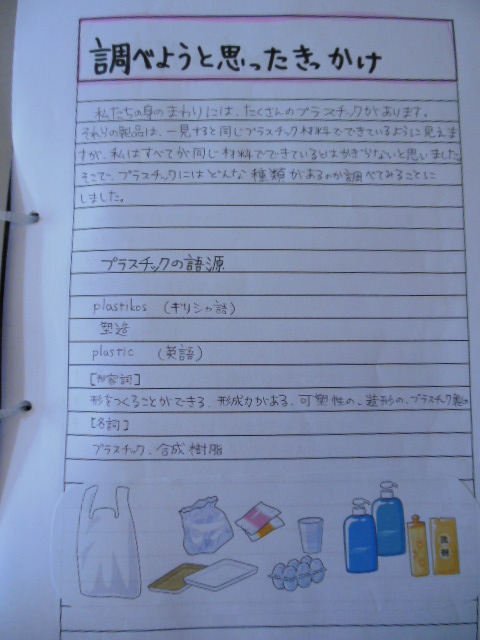 調べようと思ったきっかけ
私たちの身のまわりには、たくさんのプラスチックがあります。
それらの製品は、一見すると同じプラスチック材料でできているように見えま
すが、私はすべてが同じ材料でできているとはかぎらないと思いました。
そこで、プラスチックにはどんな種類があるのか調べてみることに
しました。
プラスチックの語源
plastikos (ギリシャ語)
塑造
plastic (英語)
[形容詞]
形をつくることができる、形成力がある、可塑性の、造形の、プラスチック製の
[名詞]
プラスチック、合成樹脂
洗剤